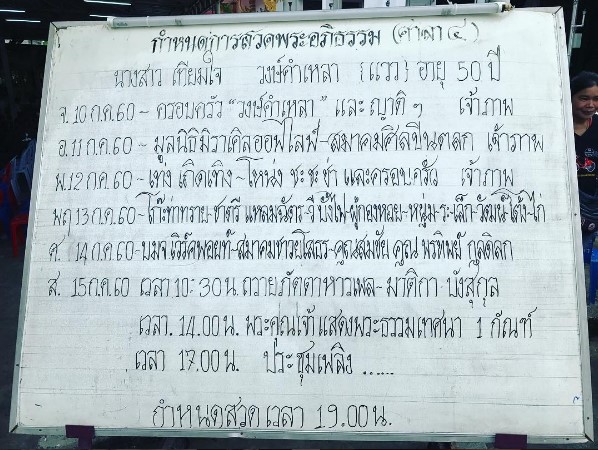 กำหนดการสวดพระอภิธรรม (ศาลา ๔)
นางสาว เทียมใจ วงษ์คำเหลา (แวว) อายุ 50 ปี
จ. 10 ก.ค. 60 ~ ครอบครัว "วงษ์คำเหลา" และ ญาติ ๆ เจ้าภาพ
อ. 11 ก.ค. 60 ~ มูลนิธิมิราเคิลออฟไลฟ์-สมาคมศิลปินตลก เจ้าภาพ
พ. 12 ก.ค. 60 ~ เทง เถิดเทิง ~ โหน่ง ชะชะช่า และครอบครัว เจ้าภาพ
พฤ 13 ก.ค. 60 ~ โก๊ะท่าทราย-ชาตรี แหลมฉัตร-วี บั้งไฟ-ผู้กองหอย-หนุ่ม-ระ-เล็ก-วัฒน์-โต้ง-ไก่
ศ. 14 ก.ค. 60 - บมจ. เวิร์คพอยท์-สมาคมชาวยโสธร-คุณสมชัย คุณ พรทิพย์ กูลดิลก
ส. 15 ก.ค. 60 เวลา 10:30 น. ถวายภัตตาหารเพล-มาติกา-บังสุกุล
เวลา. 14.00 น. พระคุณเจ้าแสดงพระธรรมเทศนา 1 กัณฑ์
เวลา 17.00 น. ประชุมเพลิง ......
กำหนดสวด เวลา 19.00 น.